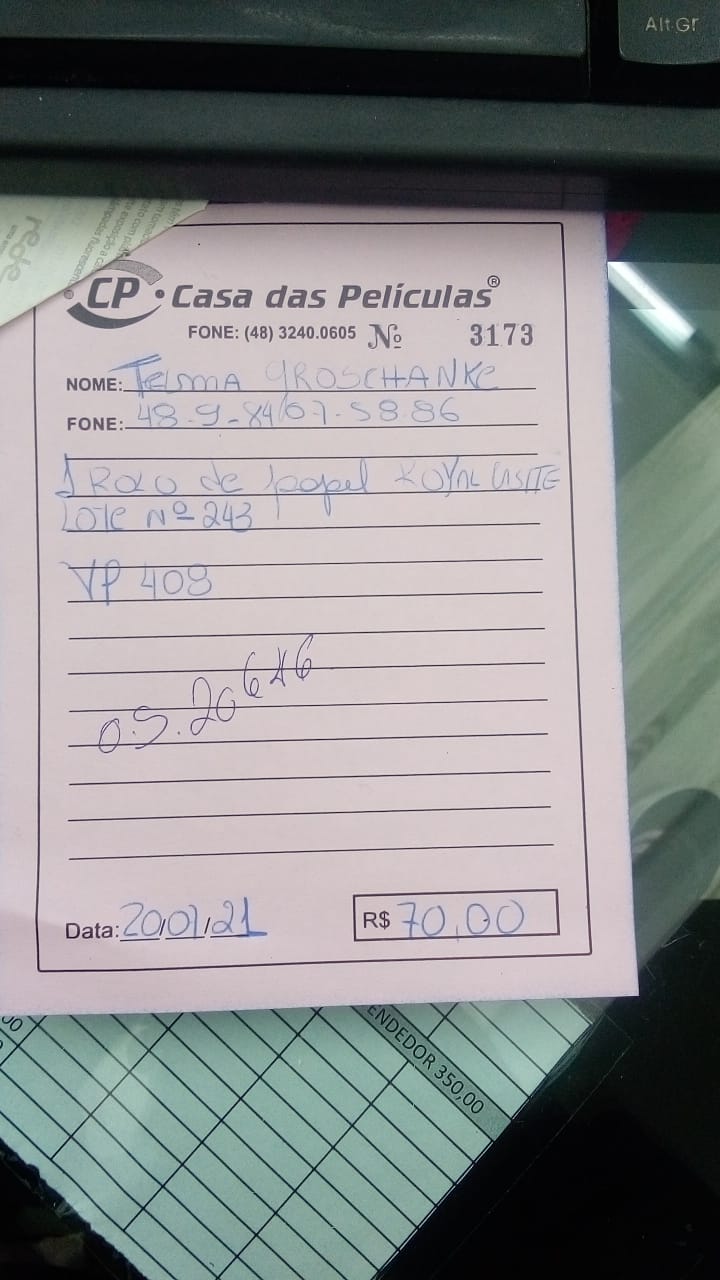 Alt Gr
rede
CP Casa das Películas®
FONE: (48) 3240.0605 Nº 3173
NOME: Telma GROSCHANKE
FONE: 48-9-84/07-58.86
1 Rolo de papel ROYAL
Lote Nº 243
VP 408
O.S. 20646
Data: 20/01/21 R$ 70,00
ENDEDOR 350,00